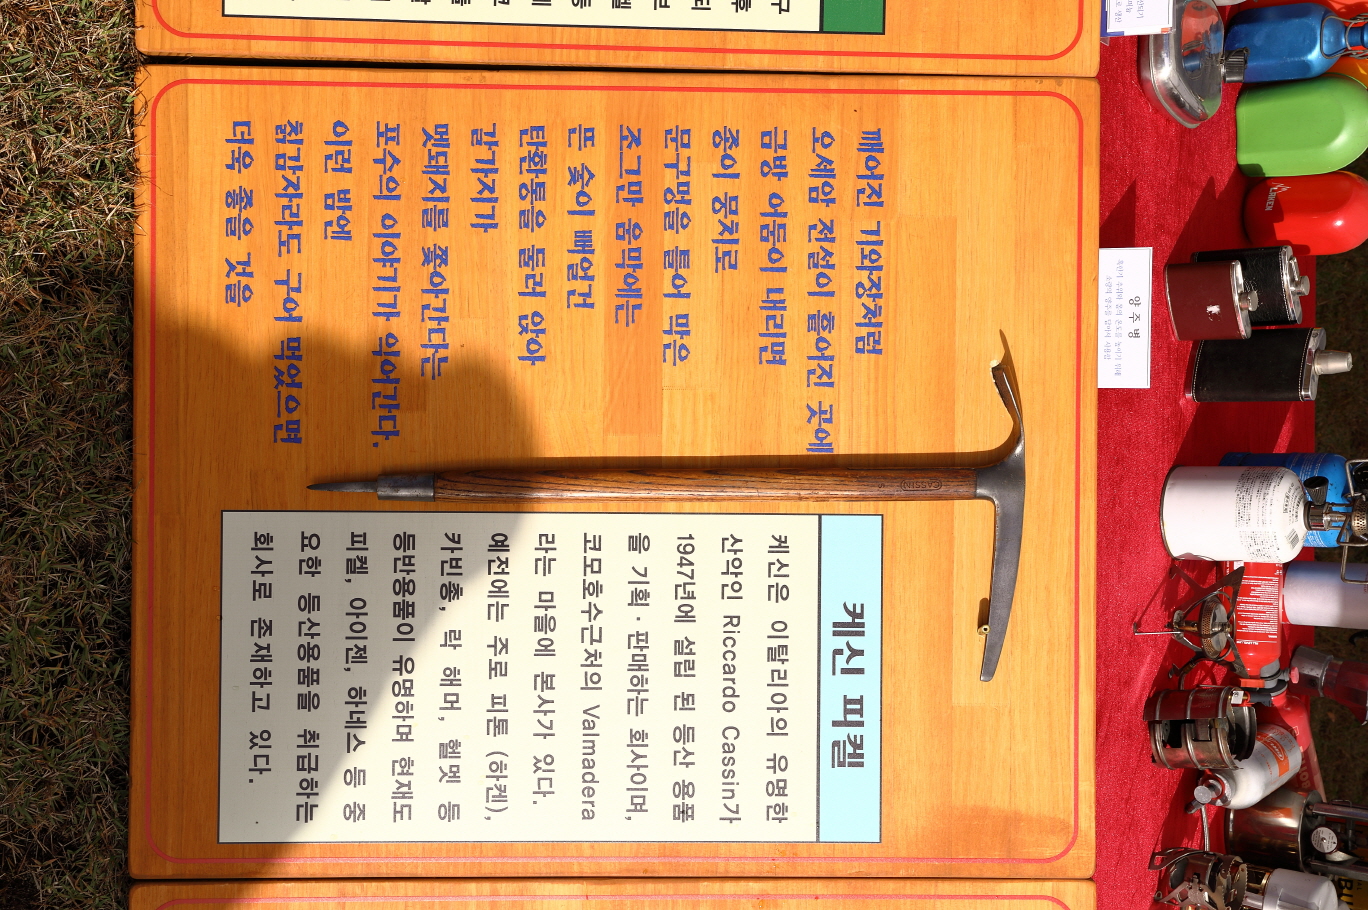 깨어진 기와장처럼
오세암 전설이 흩어진 곳에
금방 어둠이 내리면
종이 뭉치로
문구멍을 틀어 막은
조그만 움막에는
뜬 숯이 빠알간
탄환통을 둘러 앉아
갈가지가
멧돼지를 쫓아간다는
포수의 이야기가 익어간다.
이런 밤엔
칡감자라도 구어 먹었으면
더욱 좋을 것을
CASSIN
케신 피켈
케신은 이탈리아의 유명한
산악인 Riccardo Cassin가
1947년에 설린 된 등산 용품
을 기획·판매하는 회사이며,
코모호수근처의 Valmadera
라는 마을에 본사가 있다.
예전에는 주로 피톤 (하켄),
카빈총, 락 해머, 헬멧 등
등반용품이 유명하며 현재도
피켈, 아이젠, 하네스 등 중
요한 등산용품을 취급하는
회사로 존재하고 있다.
양주병